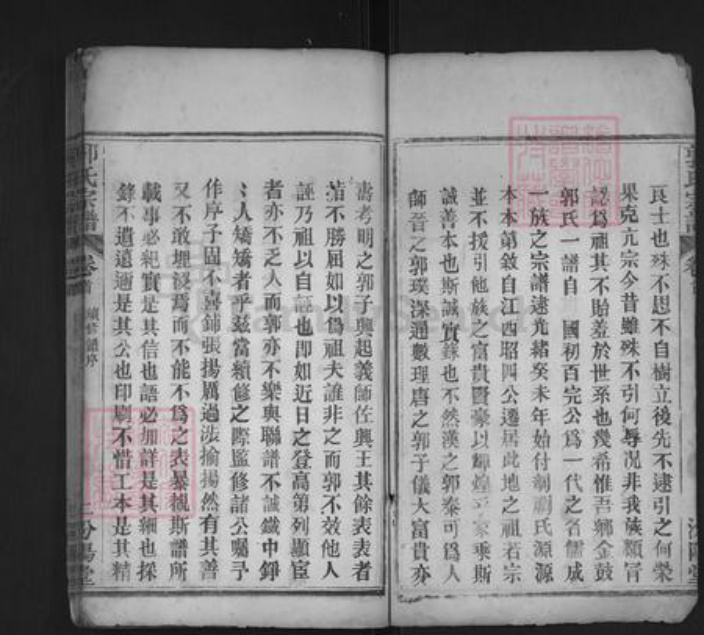 良士也殊不思不自樹立後先不建引之何榮
果克亢宗今昔雖殊不引何辱况非我蔟類冐
認爲祖其不貽羞於世系也幾希惟吾鄉金鼓
郭氏一譜自　國初百完公爲一代之名儒成
一族之宗譜逮光緒癸未年始付剞劂氏源源
本本第敘自江西昭四公遷居此地之祖若宗
並不援引他族之富貴賢豪以輝煌家乘斯
誠善本也斯誠實錄也不然漢之郭泰可爲人
師晉之郭璞深通數理唐之郭子儀大富貴亦
壽考明之郭子興起義師佐興王其餘表表者
指不勝屈如以爲祖夫誰非之而郭不效他人
誣乃祖以自誣也即如近日之登高第列顯宦
者亦不乏人而郭亦不樂與聯譜不誠鐵中錚
錚人矯矯者乎兹當續修之際監修諸公囑予
作序子固不喜鋪張揚厲過涉揄揚然有其善
又不敢埋沒焉而不能不爲之表暴觀斯譜所
載事必紀實是其信也語必加詳是其細也採
錄不遺遠邇是其公也印刷不惜工本是其精
郭氏宗譜
卷首
續修譜序
汾陽堂